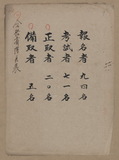 報名者　九四名
考試者　七一名
正取者　二〇名
備取者　五名